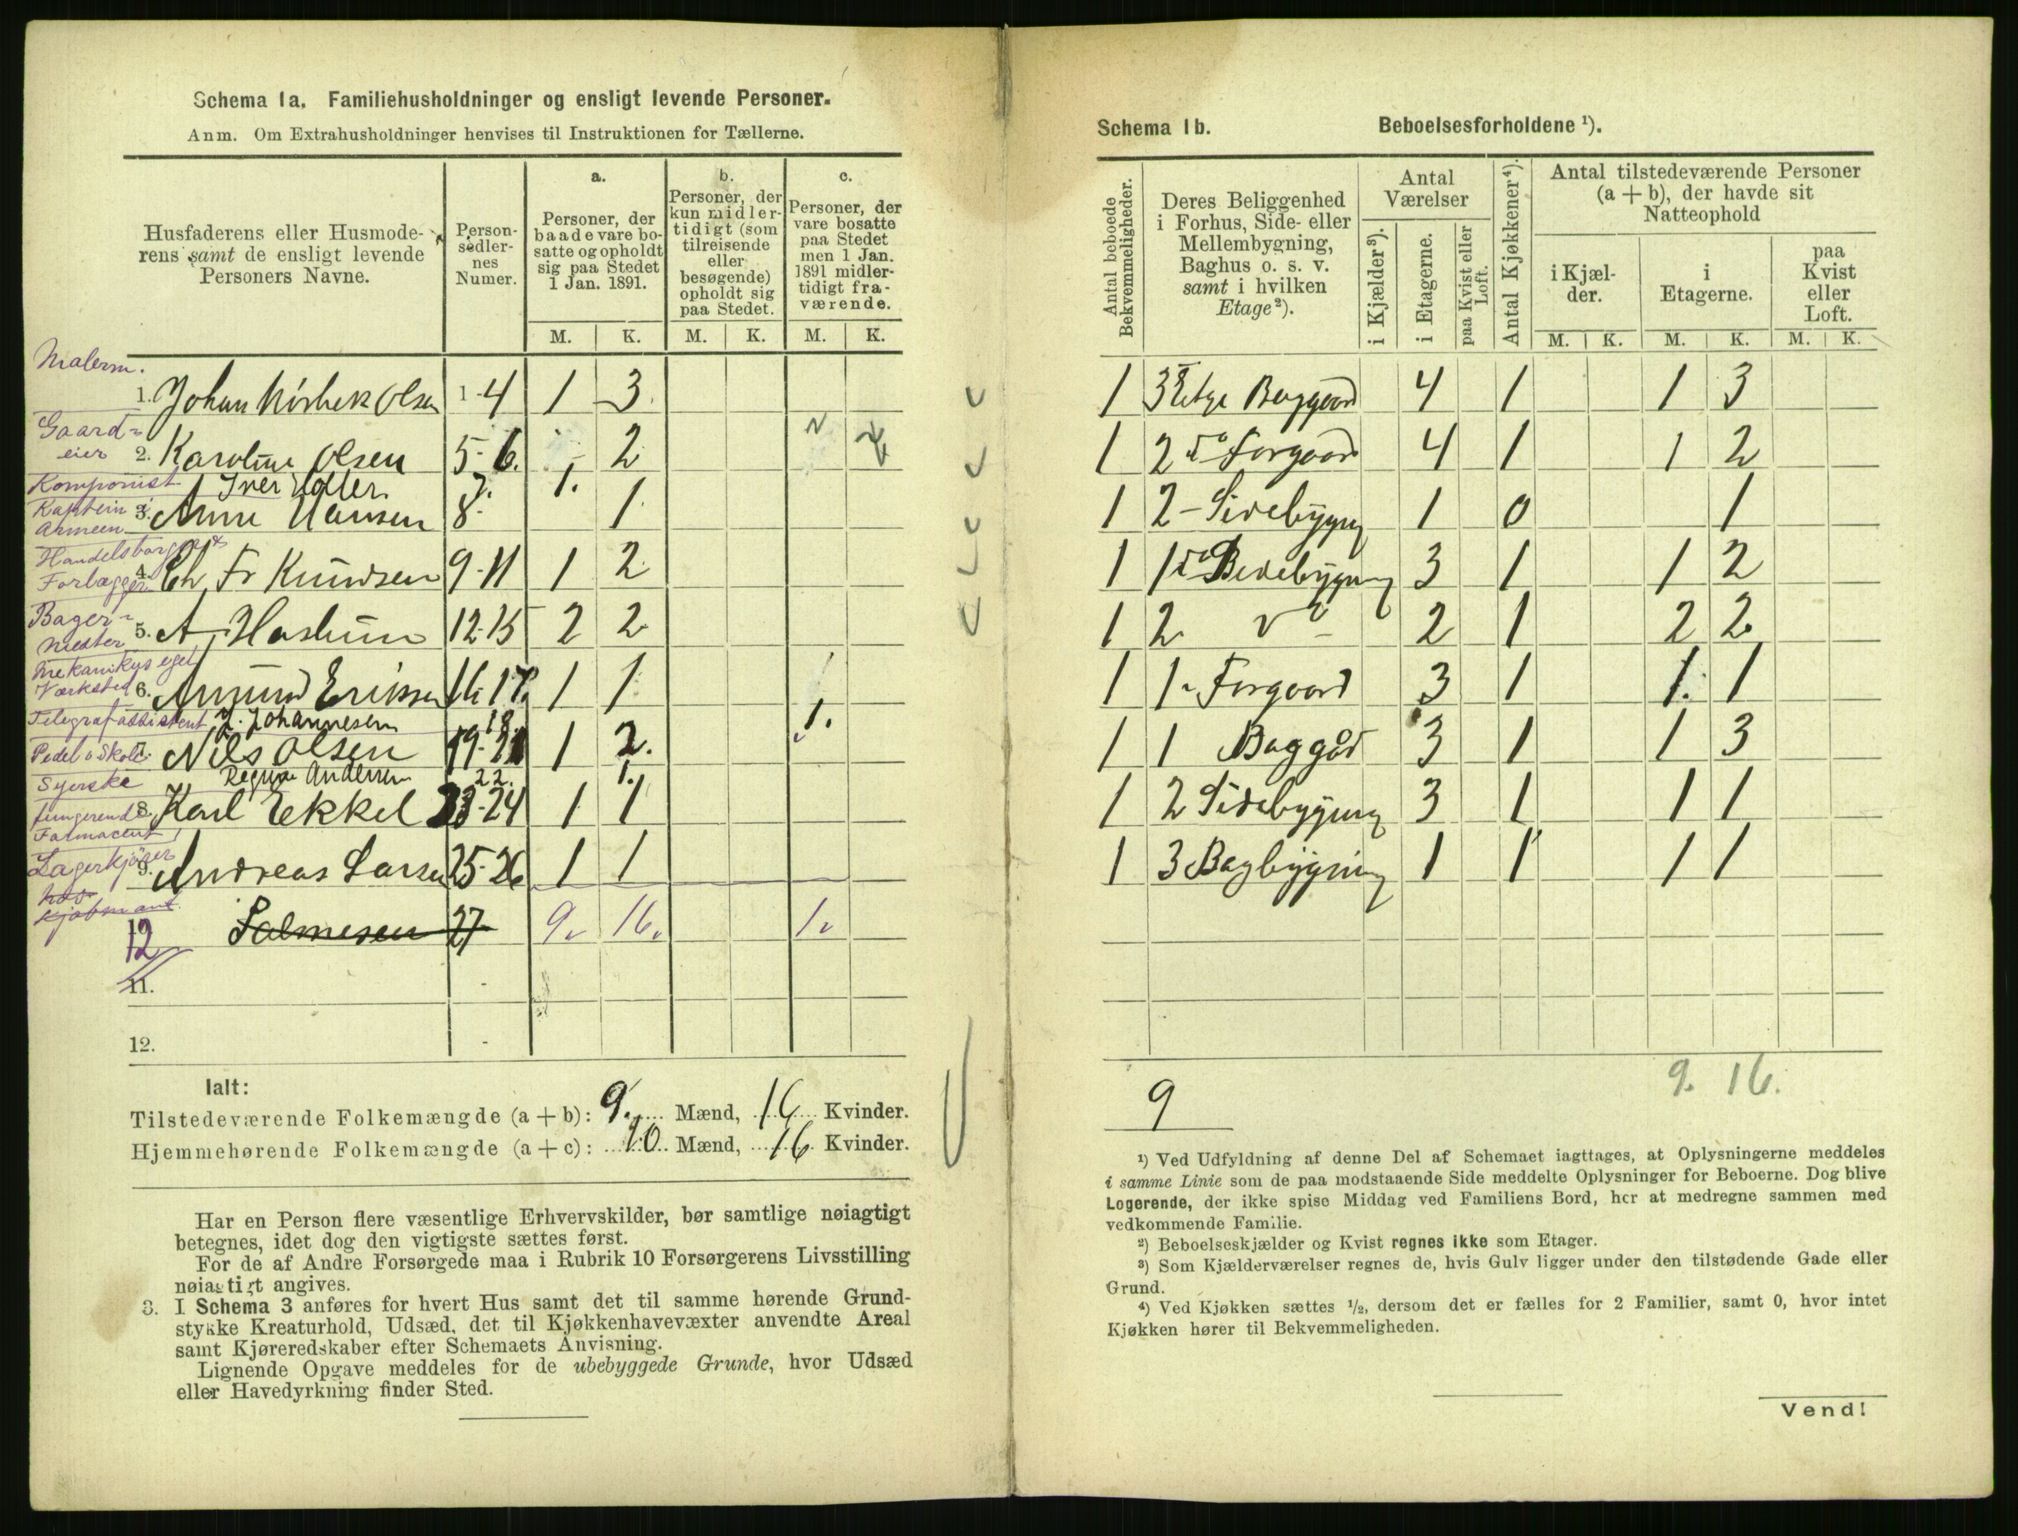 Schema 1a. Familiehusholdninger og ensligt levende Personer.
Anm. Om Extrahusholdninger henvises til Instruktionen for Tællerne.
Husfaderens eller Husmode-
rens samt de ensligt levende
Personers Navne.
Person-
sedler-
nes
Numer.
a.
Personer, der
baade vare bo-
satte og opholdt
sig paa Stedet
1 Jan. 1891.
b.
Personer, der
kun midler-
tidigt (som
tilreisende
eller
besøgende)
opholdt sig
paa Stedet.
c.
Personer, der
vare bosatte
paa Stedet
men 1 Jan.
1891 midler-
tidigt fra-
værende.
M. K. M. K. M. K.
Malerm.
1. Johan Olsen 1-4 1 3.
Gaard-
eier 2. Karoline Olsen 5-6. 2
Komponist Iver Holter 7. 1.
Kaptein i
Armeen 3. Anne Hansen 8- 1
Handelsborger &
Forlægger 4. Chr Fr Knudsen 9-11 1 2
Bager-
mester 5. A. Haslum 12-15 2 2
Mekanikus eget
Værksted 6. Amund Erikssen 16-17. 1 1
Telegrafassistent J. Johannesen 18. 1.
Pedel v Skole 7. Nils Olsen 19-21 1 2.
Syerske Andersen 22. 1.
fungerende
Farmaceut 8. Karl Ekkel 23-24 1 1
Lagerkjører 9. Andreas Larsen 25-26 1 1
Salmesen 27 9. 16. 1.
12
11.
12.
Ialt:
Tilstedeværende Folkemængde (a + b): 9. Mænd, 16 Kvinder.
Hjemmehørende Folkemængde (a + c): 10 Mænd, 16 Kvinder.
Har en Person flere væsentlige Erhvervskilder, bør samtlige nøiagtigt
betegnes, idet dog den vigtigste sættes først.
For de af Andre Forsørgede maa i Rubrik 10 Forsørgerens Livsstilling
nøiagtigt angives.
3. I Schema 3 anføres for hvert Hus samt det til samme hørende Grund-
stykke Kreaturhold, Udsæd, det til Kjøkkenhavevæxter anvendte Areal
samt Kjøreredskaber efter Schemaets Anvisning.
Lignende Opgave meddeles for de ubebyggede Grunde, hvor Udsæd
eller Havedyrkning finder Sted.
Schema 1b. Beboelsesforholdene ¹).
Antal beboede
Bekvemmeligheder.
Deres Beliggenhed
i Forhus, Side- eller
Mellembygning,
Baghus o. s. v.
samt i hvilken
Etage ²).
Antal
Værelser
i Kjælder ³).
i Etagerne.
paa Kvist eller
Loft.
Antal Kjøkkener ⁴).
Antal tilstedeværende Personer
(a + b), der havde sit
Natteophold
i Kjæl-
der.
i
Etagerne.
paa
Kvist
eller
Loft.
M. K. M. K. M. K.
1 3 Etge Baggaard 4 1 1 3
1 2 do Forgaard 4 1 1 2
1 2 - Sidebygng 1 0 1
1 1 do Sidebygning 3 1 1 2
1 2 do - 2 1 2 2.
1 1 - Forgaard 3 1 1. 1
1 1 Baggård 3 1 1 3
1 2 Sidebygning 3 1 1 1
1 3 Bagbygning 1 1 1 1
9 9. 16.
¹) Ved Udfyldning af denne Del af Schemaet iagttages, at Oplysningerne meddeles
i samme Linie som de paa modstaaende Side meddelte Oplysninger for Beboerne. Dog blive
Logerende, der ikke spise Middag ved Familiens Bord, her at medregne sammen med
vedkommende Familie.
²) Beboelseskjælder og Kvist regnes ikke som Etager.
³) Som Kjælderværelser regnes de, hvis Gulv ligger under den tilstødende Gade eller
Grund.
⁴) Ved Kjøkken sættes ½, dersom det er fælles for 2 Familier, samt 0, hvor intet
Kjøkken hører til Bekvemmeligheden.
Vend!